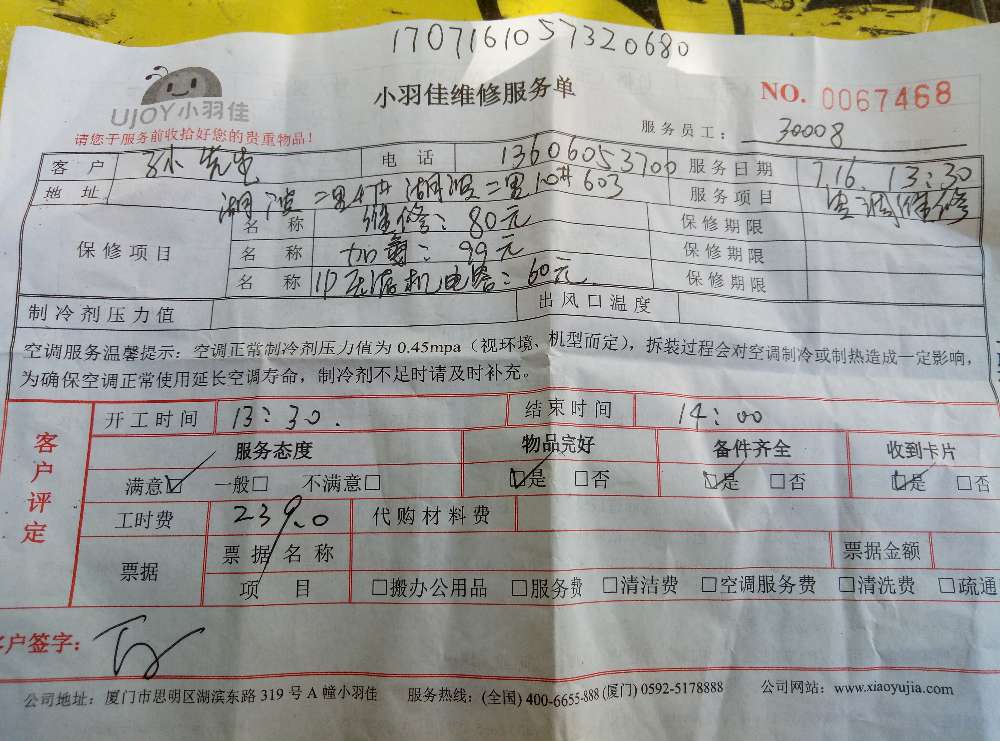 1707161057320680
UJOY小羽佳
小羽佳维修服务单
NO. 0067468
请您于服务前收拾好您的贵重物品!
服务员工: 30008
客户 孙先生 电话 13606053700 服务日期 7.16. 13:30
地址 湖滨二里 湖滨二里10# 603 服务项目 空调维修
保修项目
名称 维修: 80元 保修期限
名称 加氟: 99元 保修期限
名称 压缩机电容: 60元 保修期限
制冷剂压力值 出风口温度
空调服务温馨提示: 空调正常制冷剂压力值为 0.45mpa (视环境、机型而定), 拆装过程会对空调制冷或制热造成一定影响,
为确保空调正常使用延长空调寿命, 制冷剂不足时请及时补充。
客户评定
开工时间 13:30. 结束时间 14:00
服务态度 物品完好 备件齐全 收到卡片
满意☑ 一般□ 不满意□ ☑是 □否 ☑是 □否 ☑是 □否
工时费 239.0 代购材料费
票据 票据名称 票据金额
项目 □搬办公用品 □服务费 □清洁费 □空调服务费 □清洗费 □疏通
客户签字:
公司地址: 厦门市思明区湖滨东路 319 号 A 幢小羽佳 服务热线: (全国) 400-6655-888 (厦门) 0592-5178888 公司网站: www.xiaoyujia.com